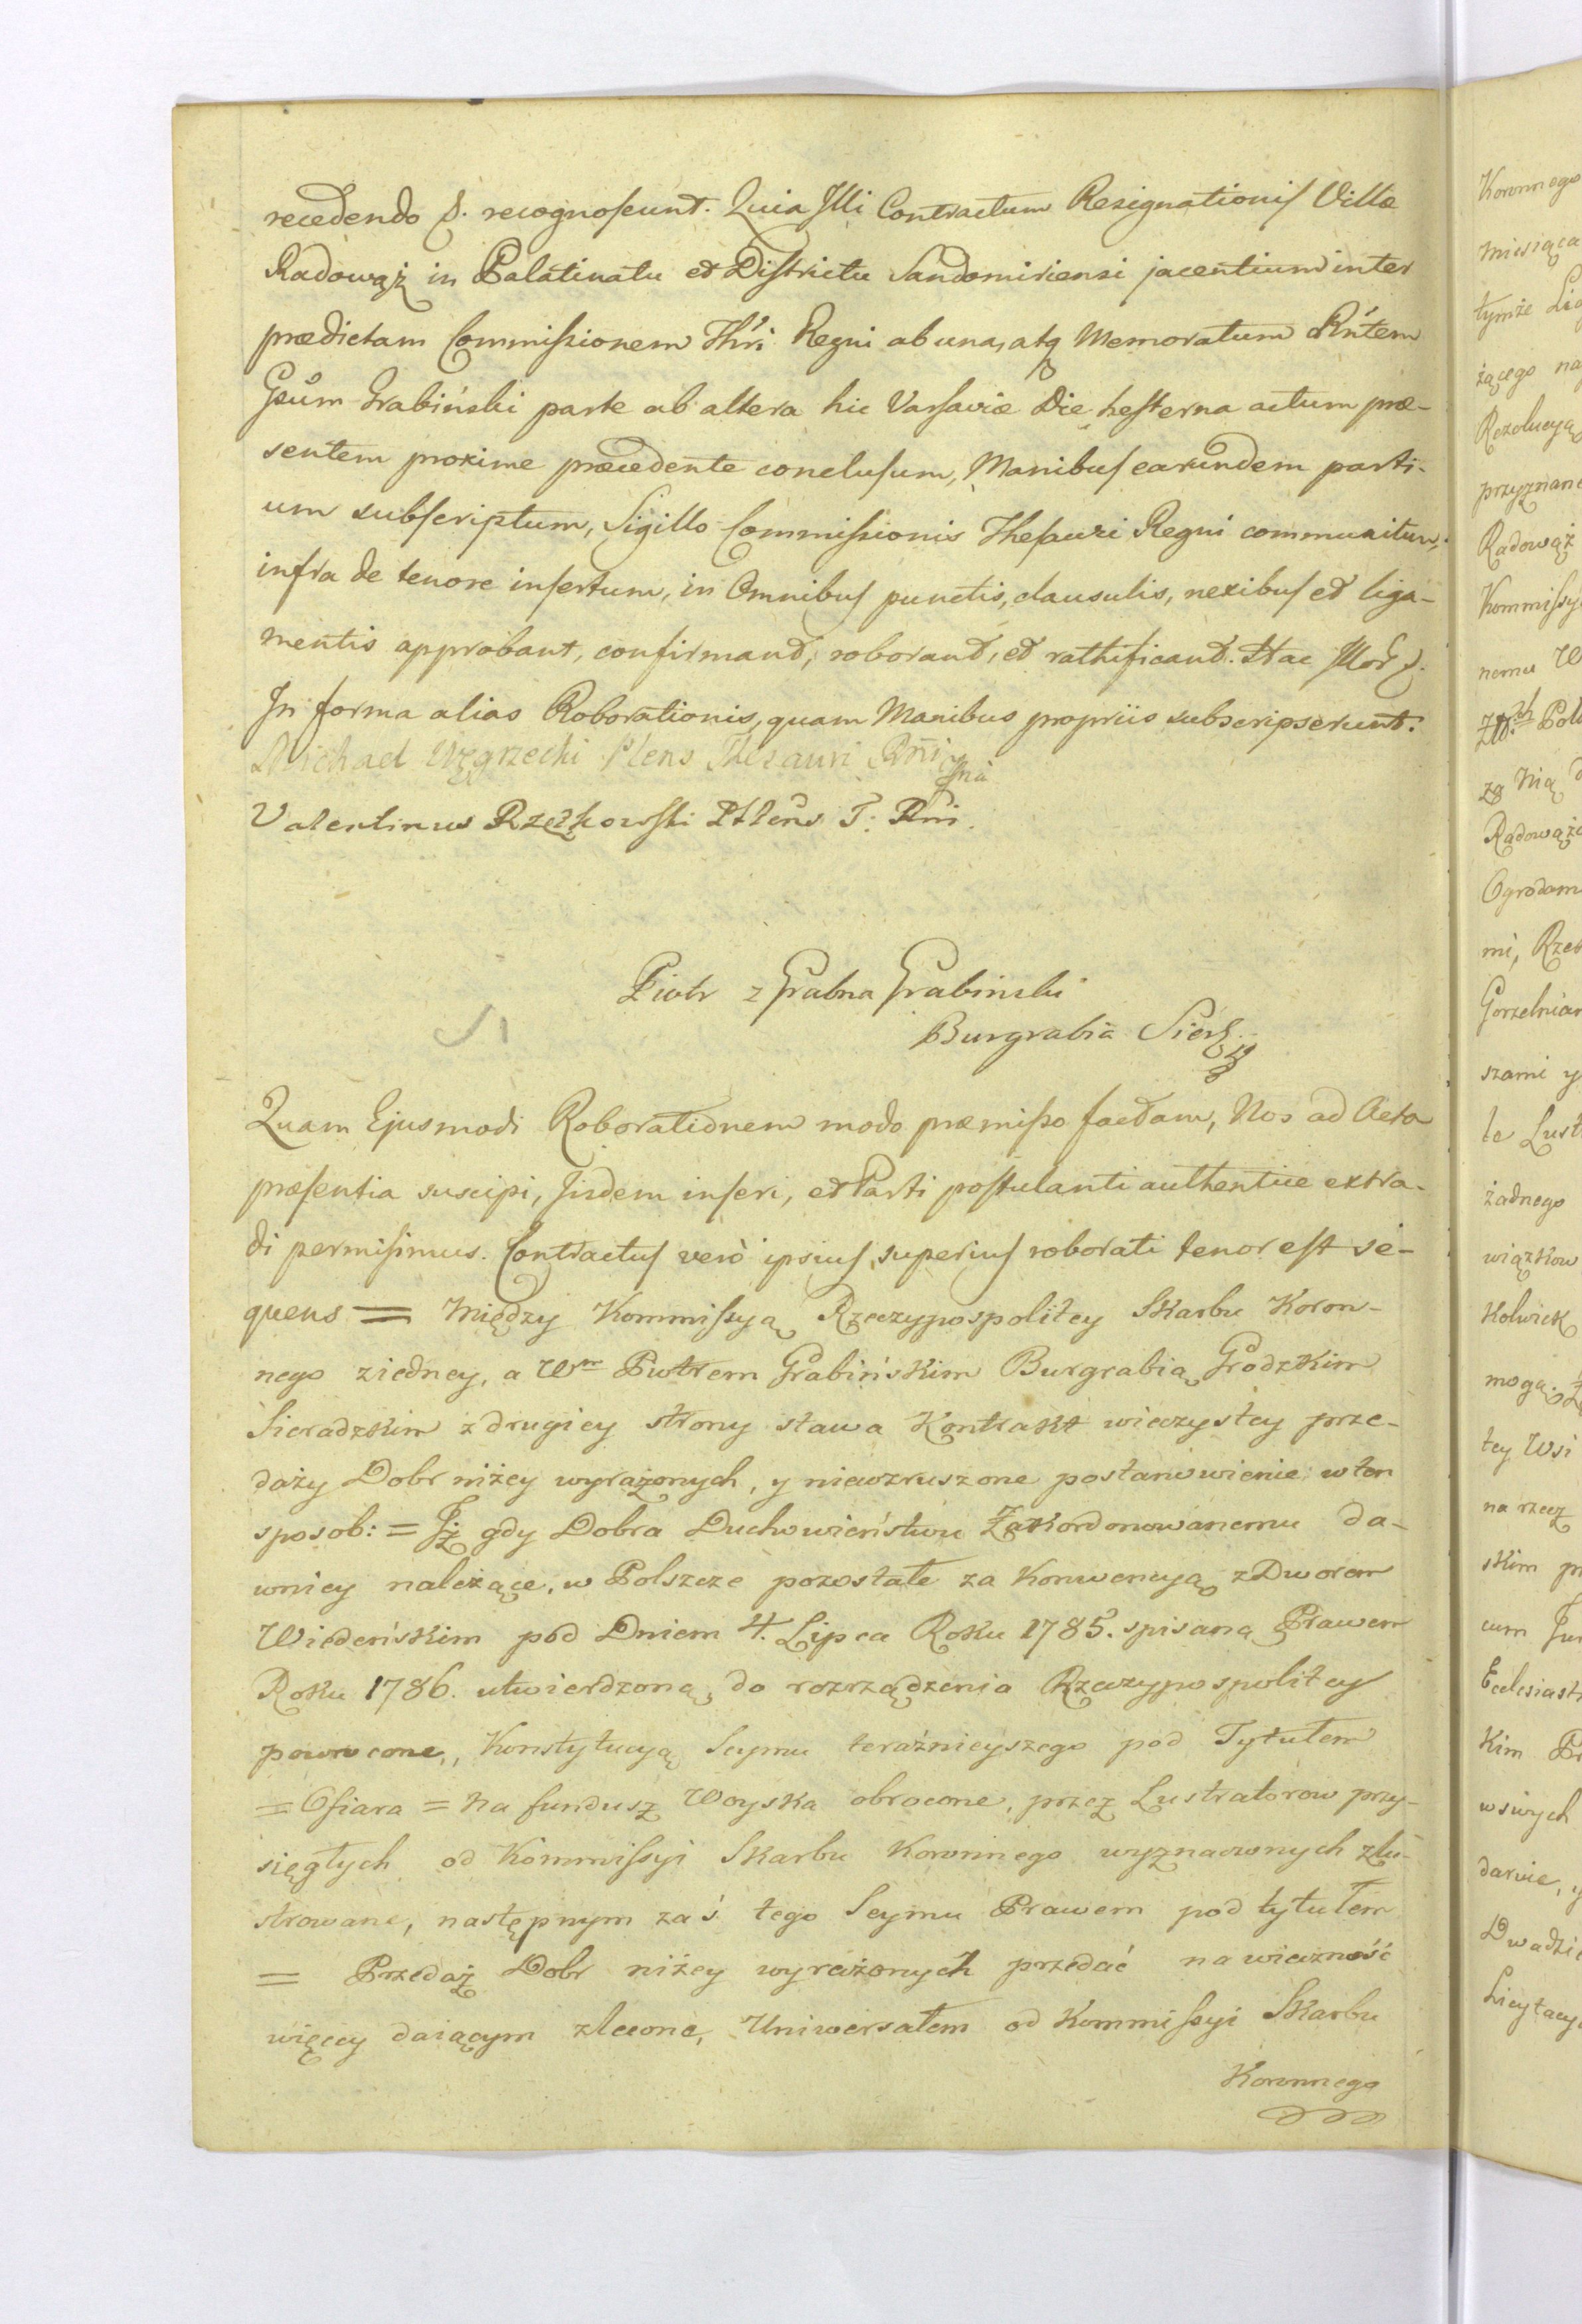 recedendo &. recognoscunt. Quia Illi Contractum Resignationis Villæ
Radowąż in Palatinatu et Districtu Sandomiriensi jacentium inter
prædictam Commissionem Thri Regni ab una, atq Memoratum Rntem
Gsum Grabiński parte ab altera hic Varsaviæ Die hesterna actum præ-
sentem proxime præcedente conclusum, Manibus earundem parti-
um subscriptum, Sigillo Commissionis Thesauri Regni communitum,
infra de tenore insertum, in Omnibus punctis, clausulis, nexibus et liga-
mentis approbant, confirmant, roborant, et rathificant. Hac
In forma alias Roborationis, quam Manibus propriis subscripserunt.
Michael Węgrzecki Plens Thesauri Rni
Valentinus Rzętkowski T: Rni
Piotr z Grabna Grabinski
Burgrabia Sierz
Quam Ejusmodi Roborationem modo præmisso factam, Nos ad Acta
præsentia suscipi, Iisdem inseri, et Parti postulanti authentice extra-
di permisimus. Contractus verò ipsius, superius roborati tenor est se-
quens = Między Kommissyą Rzeczypospolitey Skarbu Koron-
nego ziedney, a Wm Piotrem Grabińskim Burgrabią Grodzkim
Sieradzkim z drugiey strony stawa Kontrakt wieczystey prze-
daży Dobr niżey wyrażonych, y niewzruszone postanowienie w ten
sposob: = Iż gdy Dobra Duchowieństwu Zakordonowanemu da-
wniey należące, w Polszcze pozostałe za Konwencyą z Dworem
Wiedeńskim pod Dniem 4. Lipca Roku 1785. spisaną Prawem
Roku 1786. utwierdzoną, do rozrządzenia Rzeczypospolitey
powrocone, Konstytucyą Seymu teraźnieyszego pod Tytułem
= Ofiara = na fundusz Woyska obrocone, przez Lustratorow przy-
sięgłych od Kommissyi Skarbu Koronnego wyznaczonych zlu-
strowane, następnym zaś tego Seymu Prawem pod tytułem
= Przedaż Dobr niżey wyrażonych przedać na wieczność
więcey daiącym zlecone, Uniwersałem od Kommissyi Skarbu
Koronnego